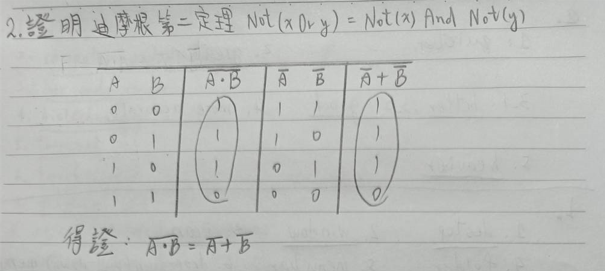 2.證明迪摩根第二定理 Not(x Or y) = Not(x) And Not(y)
A B A̅·̅B̅ A̅ B̅ A̅ + B̅
0 0 1 1 1 1
0 1 1 1 0 1
1 0 1 0 1 1
1 1 0 0 0 0
得證: A̅·̅B̅ = A̅ + B̅